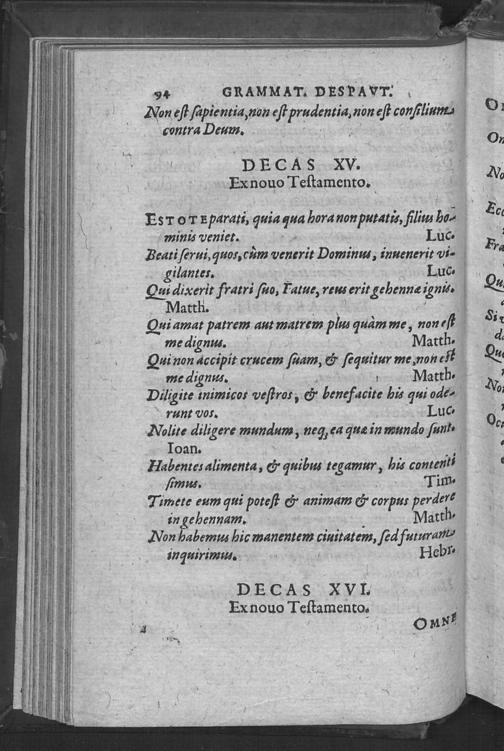 94 GRAMMAT. DESPAVT.
Non est sapientia, non est prudentia, non est consilium
contra Deum.
DECAS XV.
Ex nouo Testamento.
ESTOTE parati, quia qua hora non putatis, filius ho-
minis veniet. Luc.
Beati serui, quos, cùm venerit Dominus, inuenerit vi-
gilantes. Luc.
Qui dixerit fratri suo, Fatue, reus erit gehennæ ignis.
Matth.
Qui amat patrem aut matrem plus quàm me, non est
me dignus. Matth.
Qui non accipit crucem suam, & sequitur me, non est
me dignus. Matth.
Diligite inimicos vestros, & benefacite his qui ode-
runt vos. Luc.
Nolite diligere mundum, neq; ea quæ in mundo sunt.
Ioan.
Habentes alimenta, & quibus tegamur, his contenti
simus. Tim.
Timete eum qui potest & animam & corpus perdere
in gehennam. Matth.
Non habemus hic manentem ciuitatem, sed futuram
inquirimus. Hebr.
DECAS XVI.
Ex nouo Testamento.
OMNE